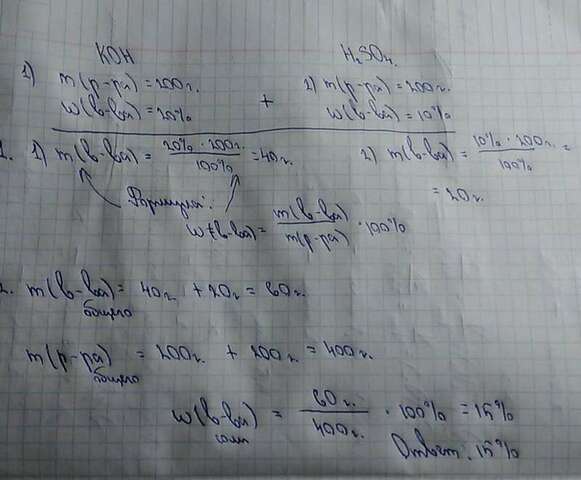 KOH H₂SO₄.
1) m(р-ра) = 200г. 2) m(р-ра) = 200г.
w(в-ва) = 20% + w(в-ва) = 10%
1. 1) m(в-ва) = 20% · 200г. / 100% = 40г. 2) m(в-ва) = 10% · 200г. / 100% =
= 20г.
Формула:
w(в-ва) = m(в-ва) / m(р-ра) · 100%
2. m(в-ва) общего = 40г. + 20г = 60г.
m(р-ра) общего = 200г. + 200г. = 400г.
w(в-ва) соли = 60г. / 400г. · 100% = 15%
Ответ: 15%